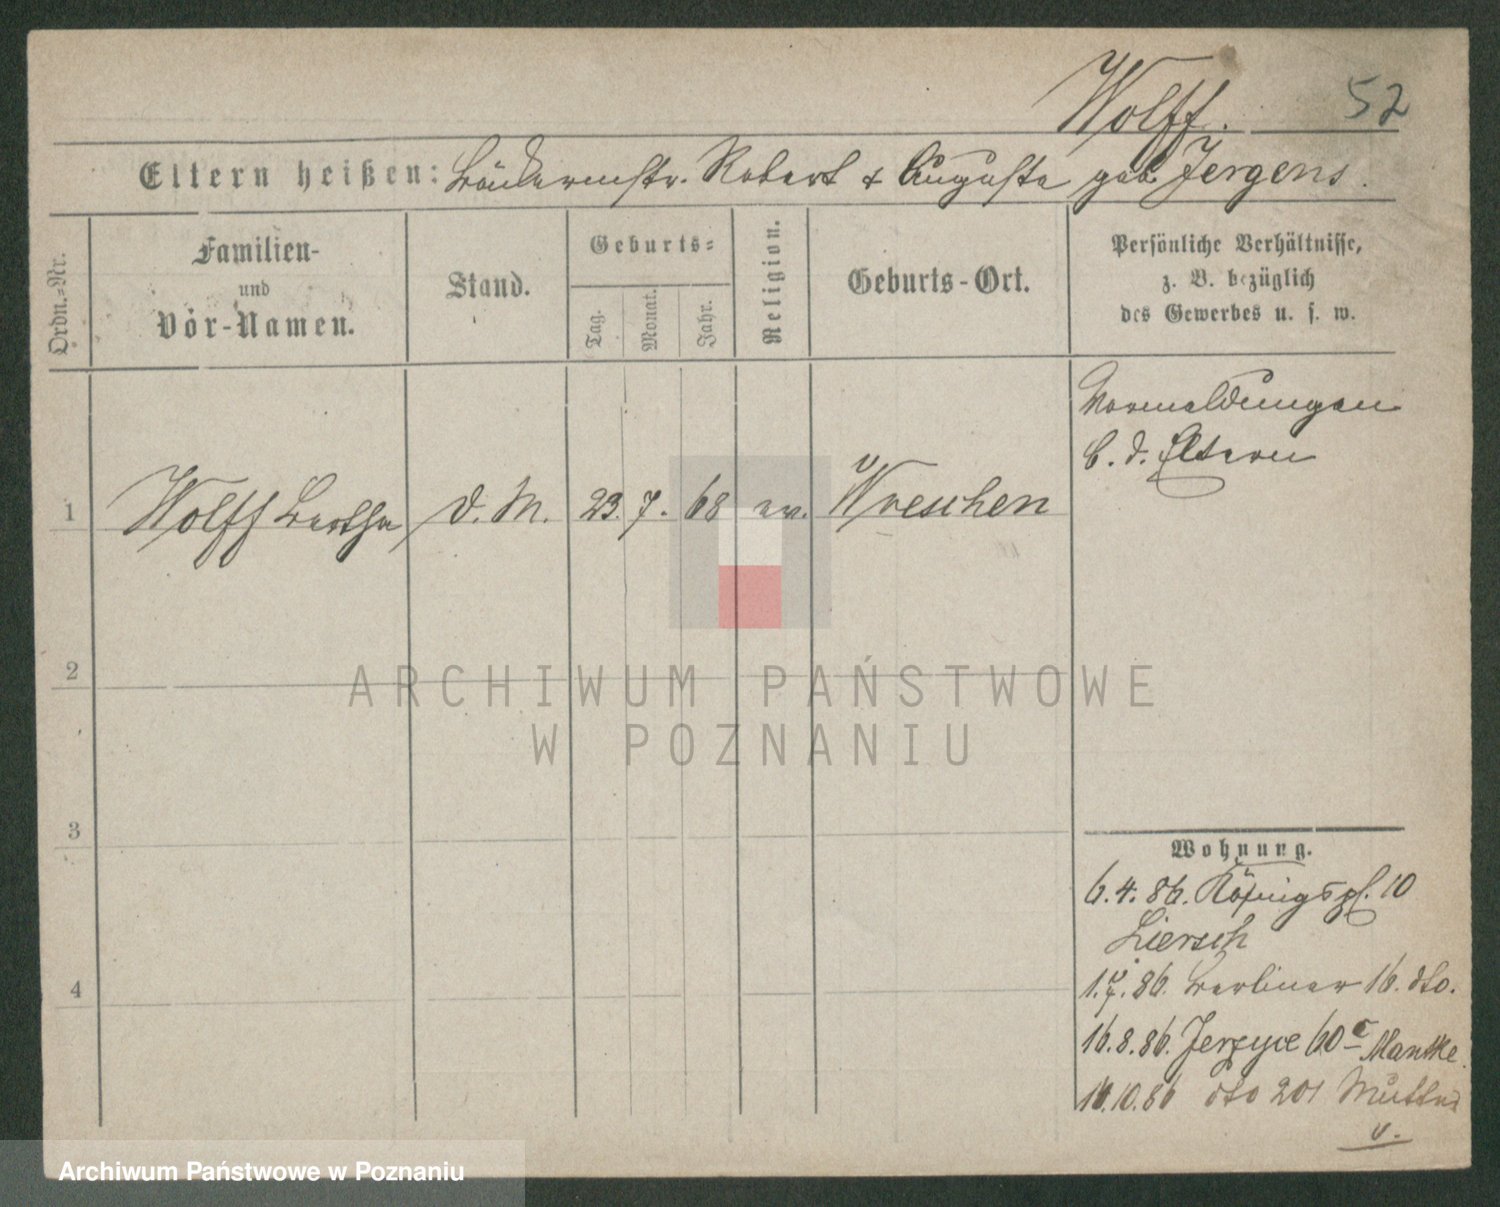 Wolff. 52
Eltern heißen: Bäckermstr. Robert & Auguste geb. Jergens.
Ordn.-Nr.
Familien-
und
Vor-Namen.
Stand.
Geburts-
Tag.
Monat.
Jahr.
Religion.
Geburts-Ort.
Persönliche Verhältnisse,
z. B. bezüglich
des Gewerbes u. s. w.
Vormeldungen
b. d. Eltern
1 Wolff Bertha d. M. 23. 7. 68 ev. Wreschen
2
3
4
Wohnung.
6.4.86. Königspl. 10
Liersch
1.7.86. Berliner 16. dto.
16.8.86. Jerzyce 60c Mantke
10.86 dto 201 Mutter
v.
ARCHIWUM PAŃSTWOWE
W POZNANIU
Archiwum Państwowe w Poznaniu